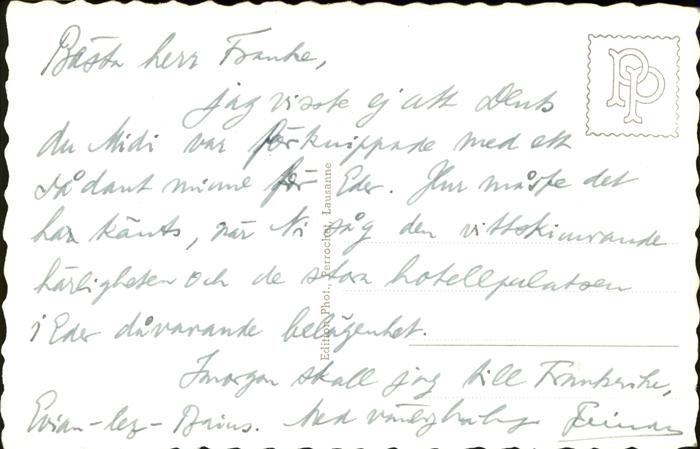 Bästa herr Franke,
jag visste ej att Dents
du Midi var förknippade med ett
sådant minne för Eder. Hur måste det
ha känts, när Ni såg den vittskimrande
härligheten och de stora hotellpalatsen
i Eder dåvarande belägenhet.
Imorgon skall jag till Frankrike,
Evian-lez-Bains. Med vänlig
Edition Phot., Perrochet, Lausanne
PP